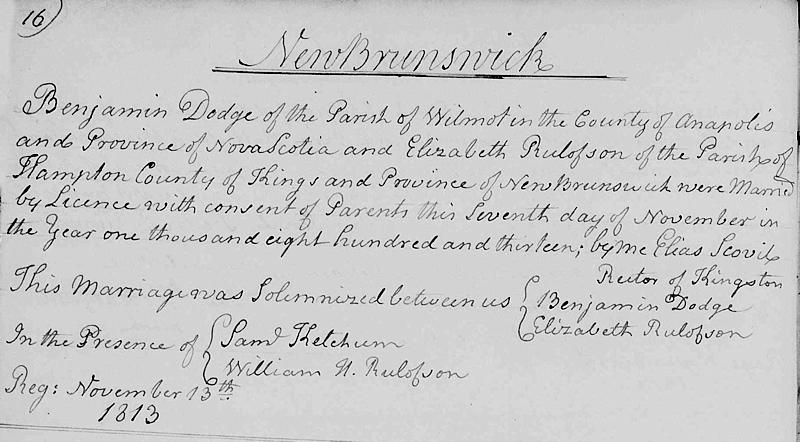 16
New Brunswick
Benjamin Dodge of the Parish of Wilmot in the County of Anapolis
and Province of Nova Scotia and Elizabeth Rulofson of the Parish of
Hampton County of Kings and Province of New Brunswick were Married
by Licence with consent of Parents this Seventh day of November in
the Year one thousand eight hundred and thirteen; by me Elias Scovil
Rector of Kingston
This Marriage was Solemnized between us { Benjamin Dodge
Elizabeth Rulofson
In the Presence of { Saml Ketchum
William H. Rulofson
Reg: November 13th
1813